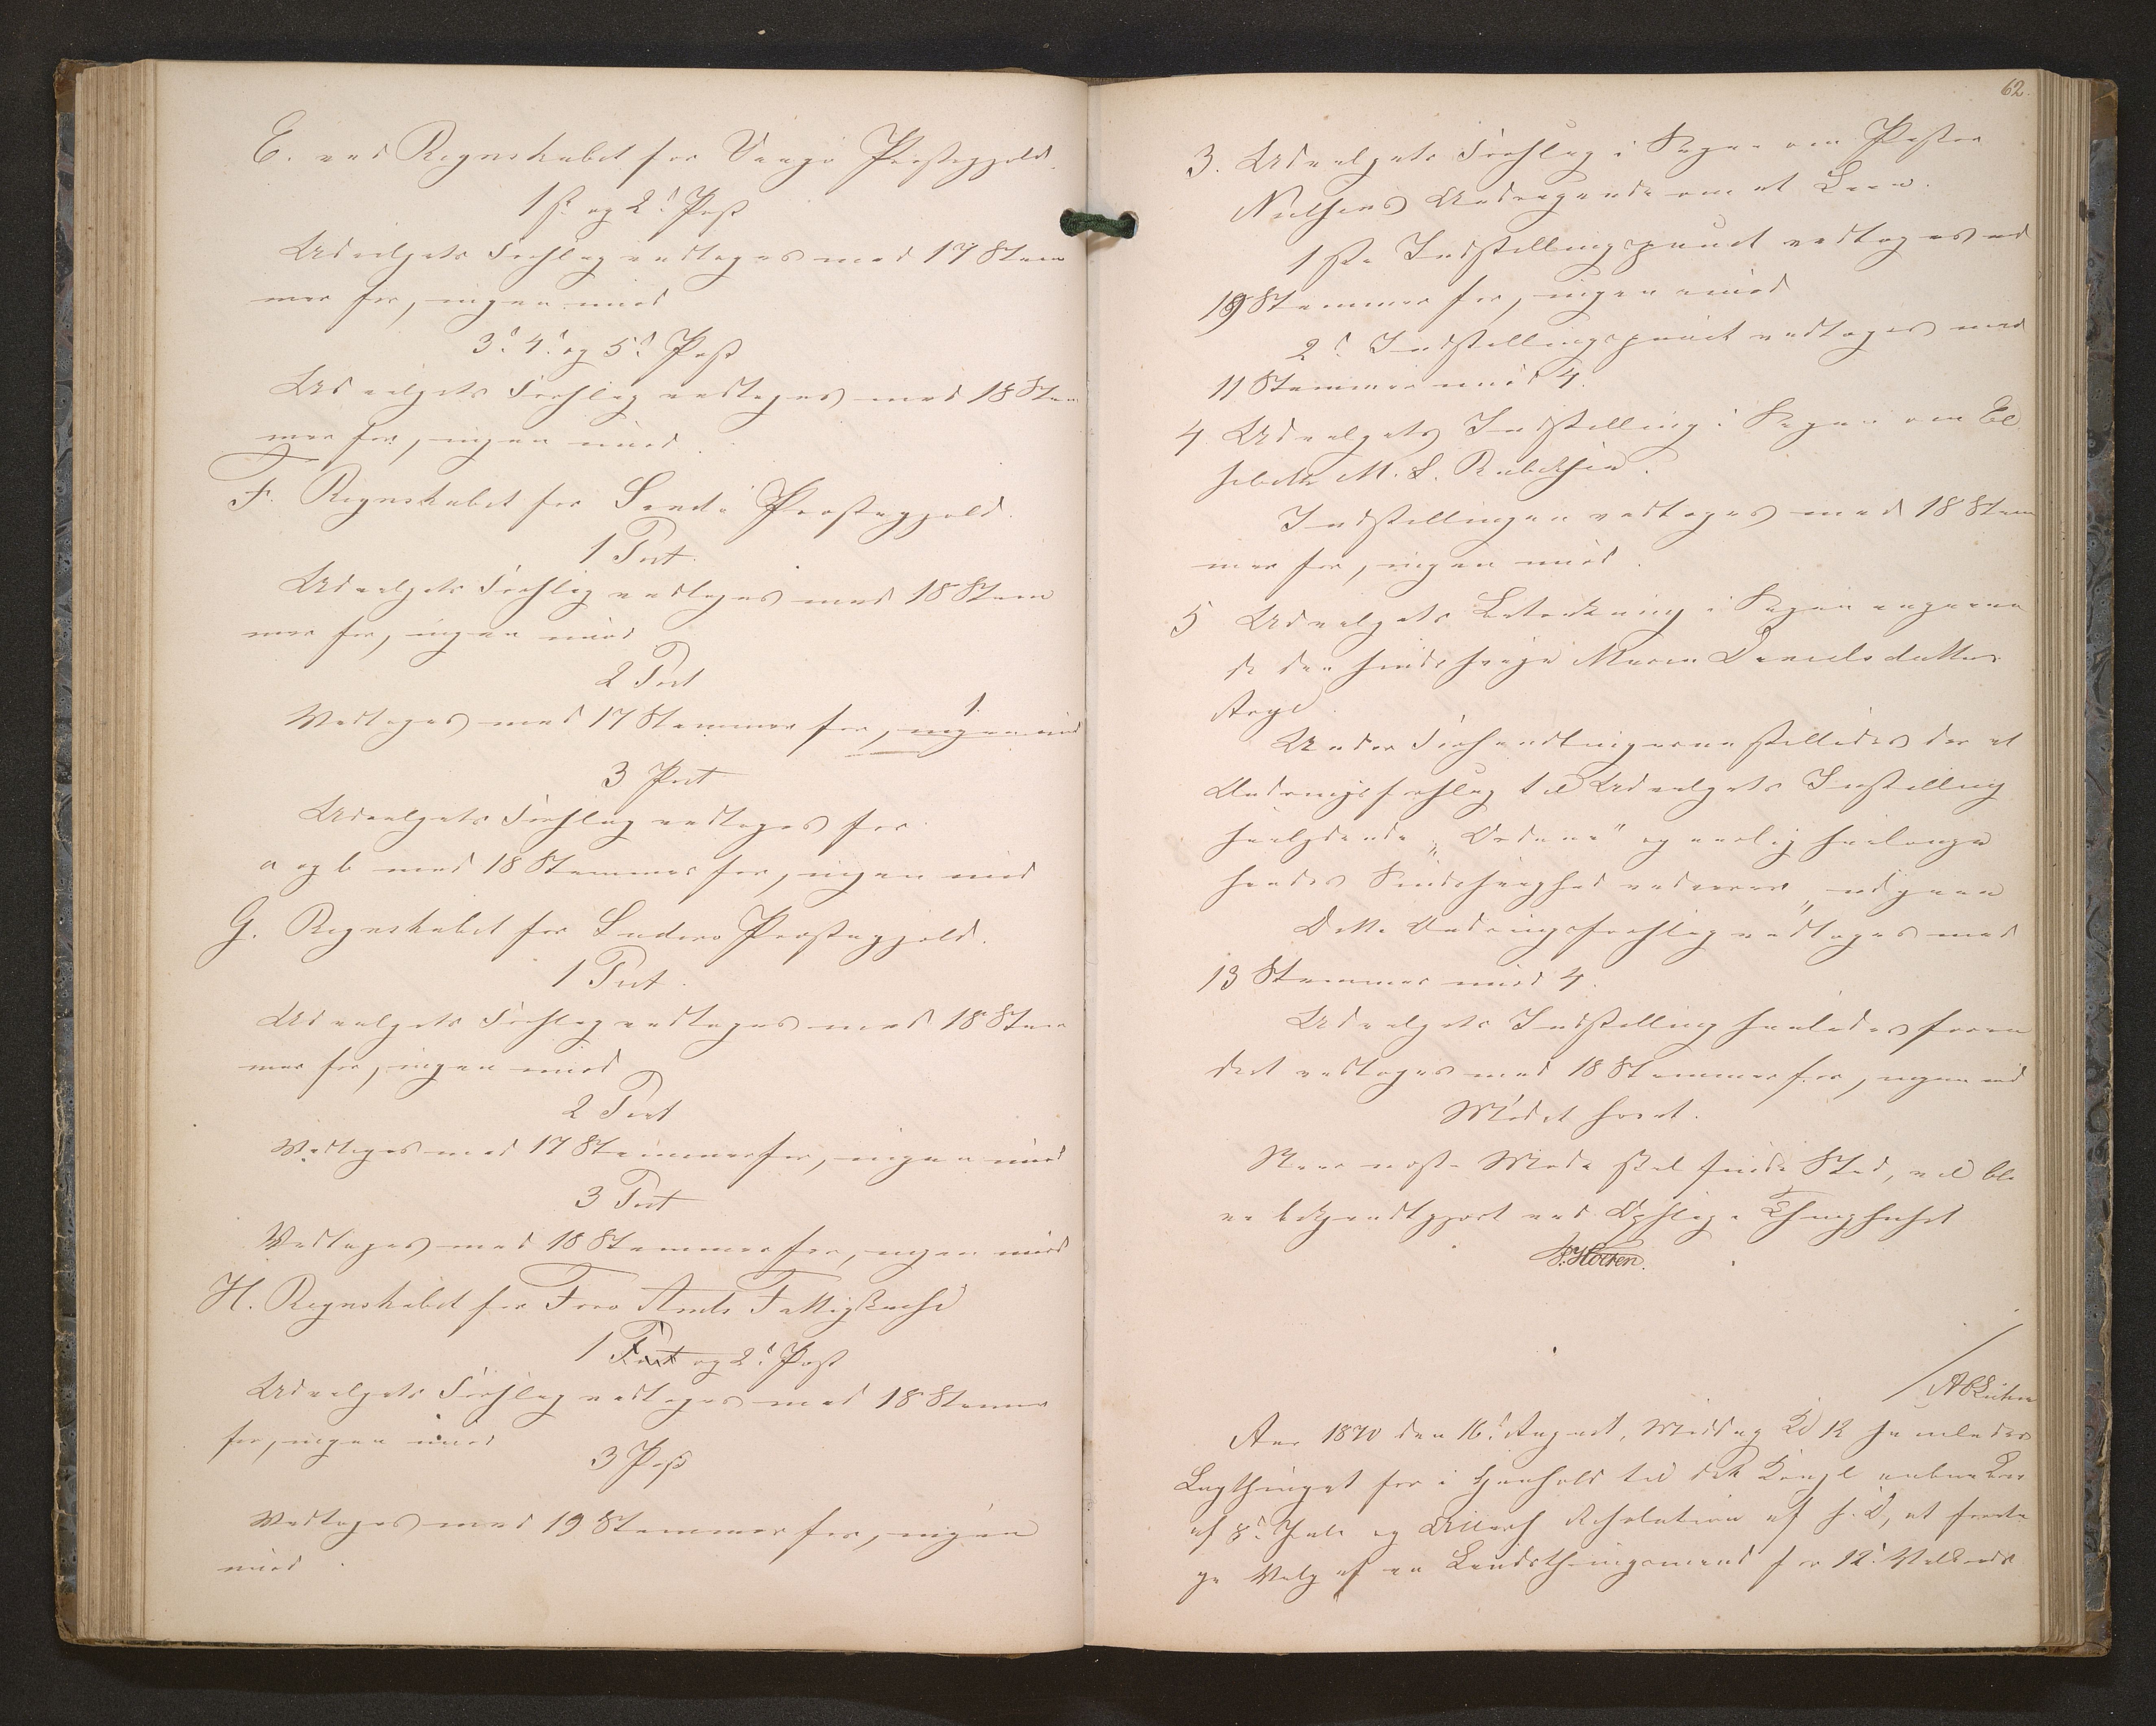 E. ved Regnskabet for Vaagø Præstegjeld.
1ste og 2d Post
Udvalgets Forslag vedtoges med 17 Stem
mer for, ingen mod
3d 4d og 5d Post
Udvalgets Forslag vedtoges med 18 Stem
mer for, ingen mod.
F. Regnskabet for Sandø Præstegjeld.
1 Post.
Udvalgets Forslag vedtoges med 18 Stem
mer for, ingen mod
2 Post
Vedtoges med 17 Stemmer for, ingen mod
1.
3 Post
Udvalgets Forslag vedtoges for
a og b med 18 Stemmer for, ingen mod
G. Regnskabet for Suderø Præstegjeld.
1 Post.
Udvalgets Forslag vedtoges med 18 Stem
mer for, ingen mod
2 Post
Vedtoges med 17 Stemmer for, ingen mod
3 Post
Vedtoges med 18 Stemmer for, ingen mod
H. Regnskabet for Færø Amts Fattigkasse
1 Post og 2d Post
Udvalgets Forslag vedtoges med 18 Stemmer
for, ingen mod
3 Post
Vedtoges med 19 Stemmer for, ingen
mod.
62.
3. Udvalgets Forslag i Sagen om Pastor
Nielsens Andragende om et Laan.
1ste Indstillingspunct vedtoges med
19 Stemmer for, ingen mod
2d Indstillingspunct vedtoges med
11 Stemmer mod 4.
4. Udvalgets Indstilling i Sagen om El
sebeth M. S. Rubeksen.
Indstillingen vedtoges med 18 Stem
mer for, ingen mod.
5 Udvalgets Betænkning i Sagen angaaen
de den sindssvage Maren Danielsdatter
Under Forhandlingerne stilledes der et
Ændringsforslag til Udvalgets Instilling
saalydende "Ordene" og navnlig saalænge
hendes Sindssvaghed vedvarer" udgaaer
Dette Ændringsforslag vedtoges med
13 Stemmer mod 4.
Udvalgets Indstilling saaledes foran
dret vedtoges med 18 Stemmer for, ingen mod
Mødet hævet.
Naar næste Møde skal finde Sted, vil bli
ve bekjendtgjort ved Opslag i Thinghuset
Aar 1870 den 16d August, Middag Kl 12 samledes
Lagthinget for i Henhold til det Kongl aabne Brev
af 8d Juli og Allerh Resolution af s. D, at foreta
ge Valg af en Landsthingsmand for 12d Valkreds